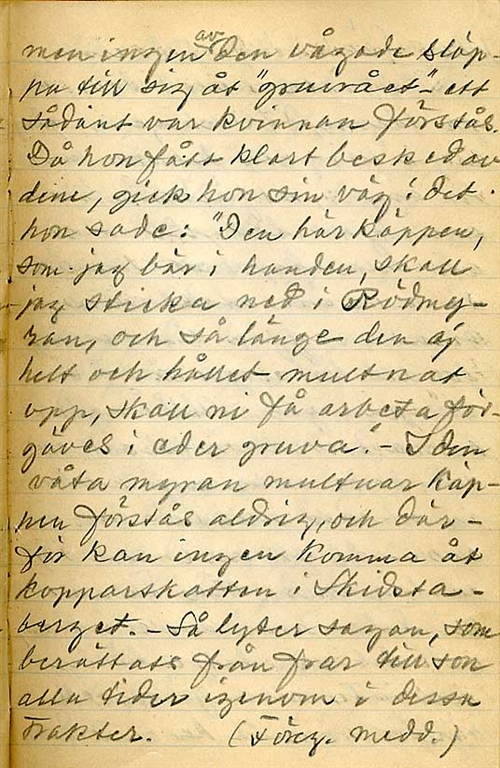 men ingen av dem vågade släp-
pa till sig åt "gruvrået" - ett
sådant var kvinnan förstås.
Då hon fått klart besked av
dem, gick hon sin väg i det
hon sade: "Den här käppen,
som jag bär i handen, skall
jag sticka ned i Rödmy-
ran, och så länge den ej
helt och hållet multnat
opp, skall ni få arbeta för-
gäves i eder gruva." - I den
våta myran multnar käp-
pen förstås aldrig, och där-
för kan ingen komma åt
kopparskatten i Skidsta-
berget. - Så lyder sagan, som
berättats från far till son
alla tider igenom i dessa
trakter. (Föreg. medd.)